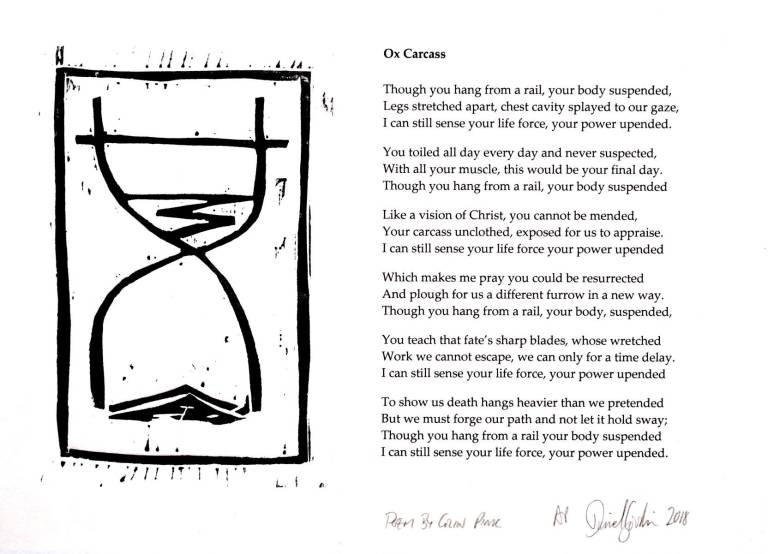 Ox Carcass
Though you hang from a rail, your body suspended,
Legs stretched apart, chest cavity splayed to our gaze,
I can still sense your life force, your power upended.
You toiled all day every day and never suspected,
With all your muscle, this would be your final day.
Though you hang from a rail, your body suspended
Like a vision of Christ, you cannot be mended,
Your carcass unclothed, exposed for us to appraise.
I can still sense your life force your power upended
Which makes me pray you could be resurrected
And plough for us a different furrow in a new way.
Though you hang from a rail, your body, suspended,
You teach that fate's sharp blades, whose wretched
Work we cannot escape, we can only for a time delay.
I can still sense your life force, your power upended
To show us death hangs heavier than we pretended
But we must forge our path and not let it hold sway;
Though you hang from a rail your body suspended
I can still sense your life force, your power upended.
Poem By Colin Pink
AP 2018